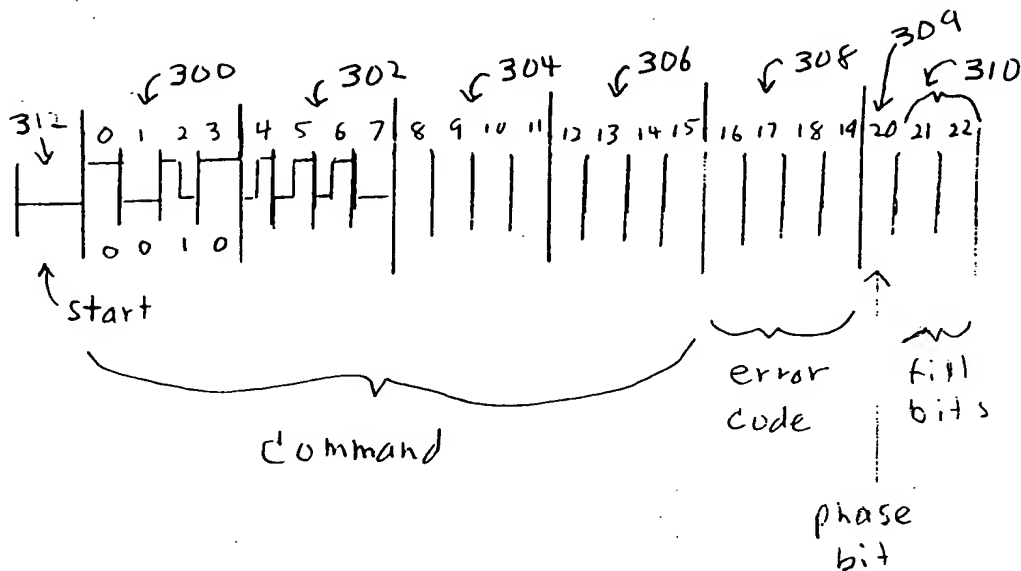 300 302 304 306 308 309 310
312 0 1 2 3 4 5 6 7 8 9 10 11 12 13 14 15 16 17 18 19 20 21 22
0 0 1 0
start
Command
error code
fill bits
phase bit